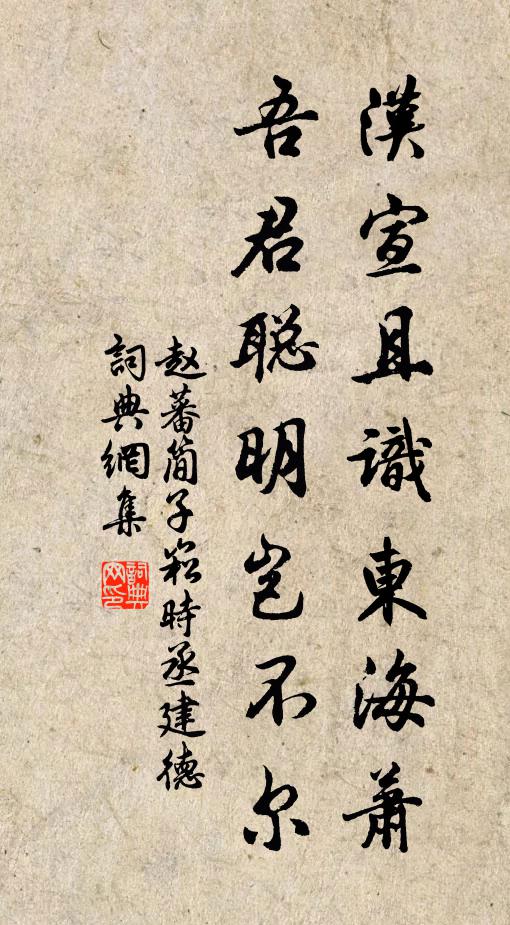 漢宣且識東海蕭
吾君聰明岂不尔
赵蕃簡子崧時丞建德
詞典網集
詞典网印